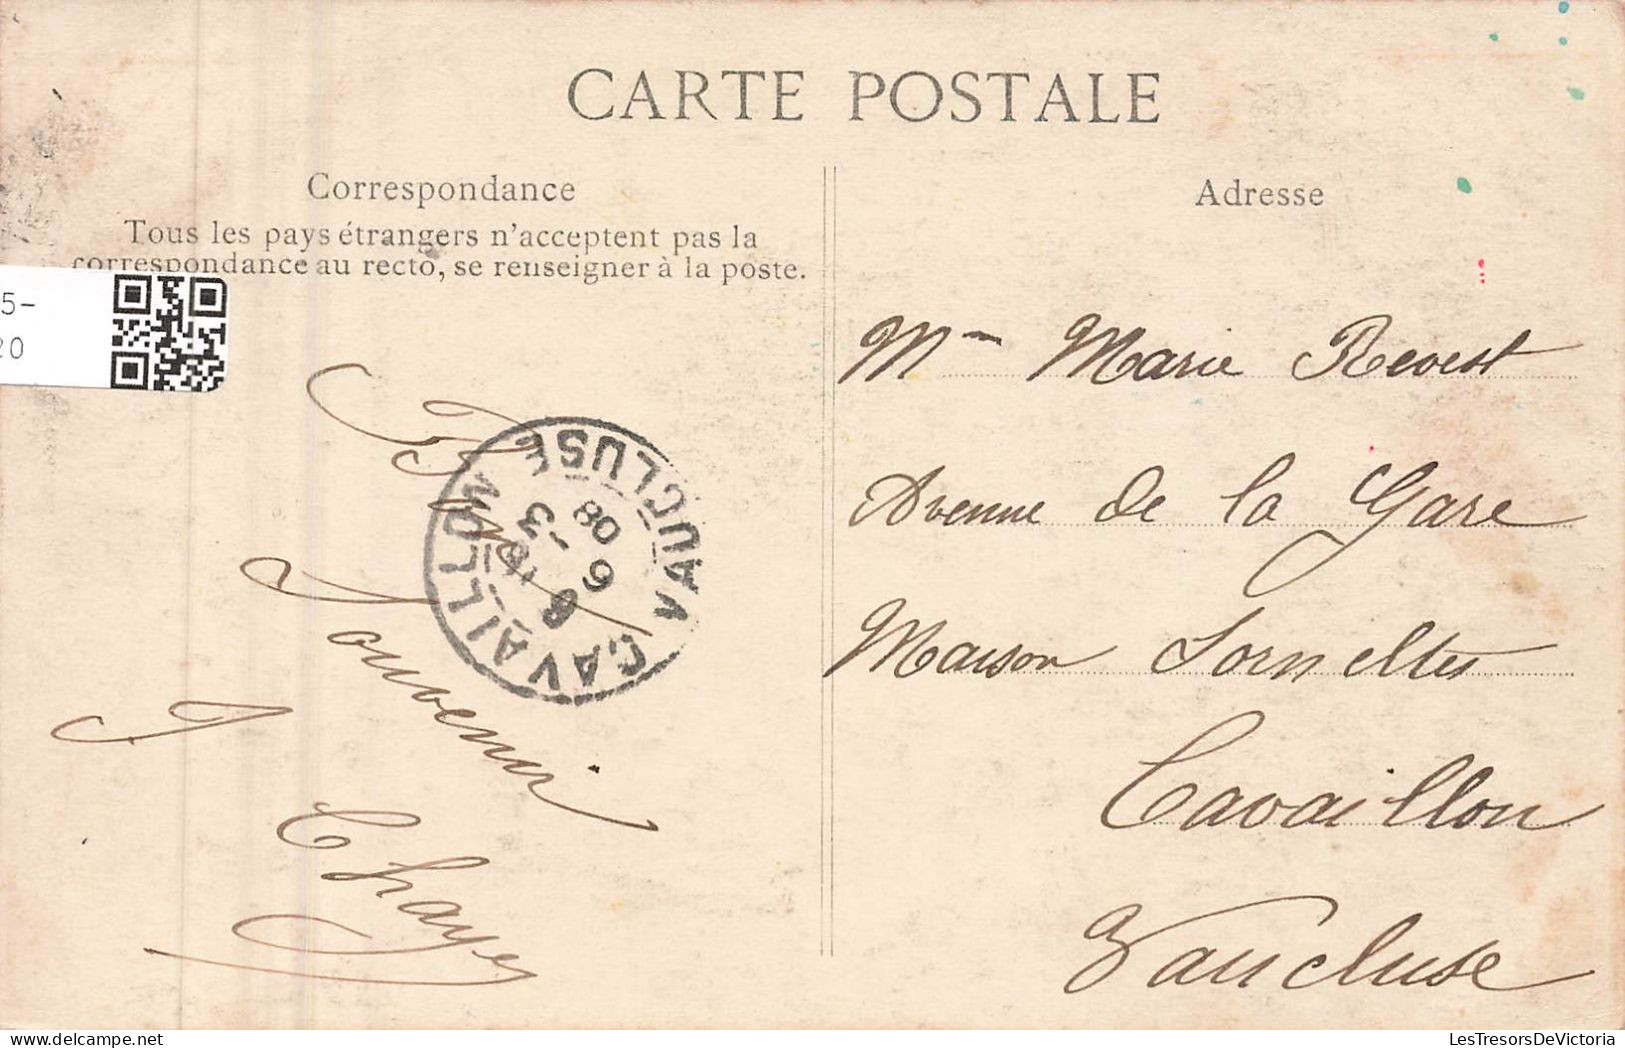 CARTE POSTALE
Correspondance
Tous les pays étrangers n'acceptent pas la
correspondance au recto, se renseigner à la poste.
5-
20
Bon
Souvenir
J Chayer
CAVAILLON VAUCLUSE
8
3-6
08
Adresse
Mme Marie Revest
Avenue de la Gare
Maison
Cavaillon
Vaucluse
LesTresorsDeVictoria